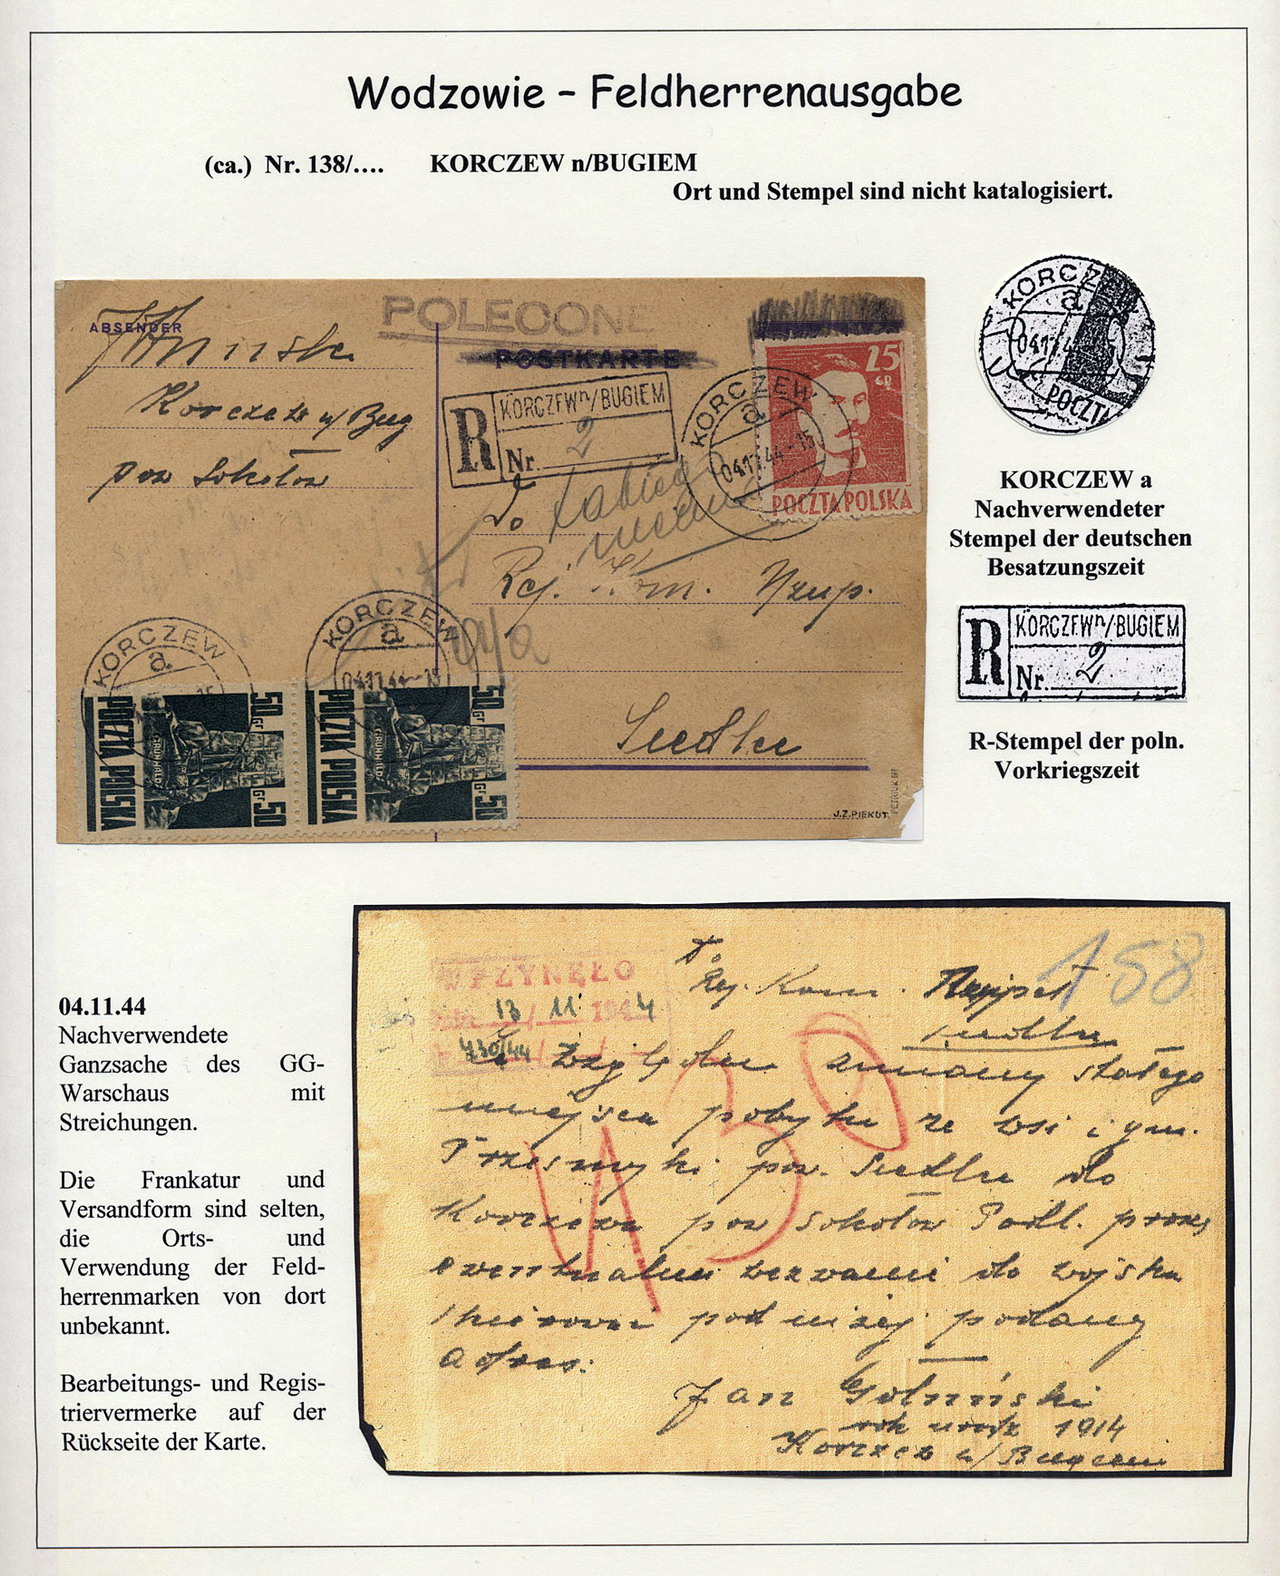 Wodzowie – Feldherrenausgabe
(ca.) Nr. 138/.... KORCZEW n/BUGIEM
Ort und Stempel sind nicht katalogisiert.
POLECONE
ABSENDER
POSTKARTE
Korczew n/Bug
pow Sokołów
R KORCZEW n/BUGIEM
Nr. 2
KORCZEW
a
04.11.44-15
25
GR
POCZTA POLSKA
Do
Rej. Kom. Uzup.
Siedlce
KORCZEW
a
15
KORCZEW
a
04.11.44-15
50 Gr
GRUNWALD
POCZTA POLSKA
50 Gr
50 Gr
GRUNWALD
POCZTA POLSKA
50 Gr
J.Z.PIEKUT
KORCZEW
a
04.11.4
POCZTA
KORCZEW a
Nachverwendeter
Stempel der deutschen
Besatzungszeit
R KORCZEW n/BUGIEM
Nr. 2
R-Stempel der poln.
Vorkriegszeit
04.11.44
Nachverwendete
Ganzsache des GG-
Warschaus mit
Streichungen.
Die Frankatur und
Versandform sind selten,
die Orts- und
Verwendung der Feld-
herrenmarken von dort
unbekannt.
Bearbeitungs- und Regis-
triervermerke auf der
Rückseite der Karte.
WPŁYNĘŁO
13/11 1944
430/44
158
Do
Rej. Kom.
Siedlce
Z względu zmiany stałego
miejsca pobytu ze wsi i gm.
Przesmyki pow. Siedlce do
Korczewa pow Sokołów Podl. proszę
ewentualne wezwanie do wojska
skierować pod niżej podany
adres.
Jan
rok urodz 1914
Korczew n/Bugiem